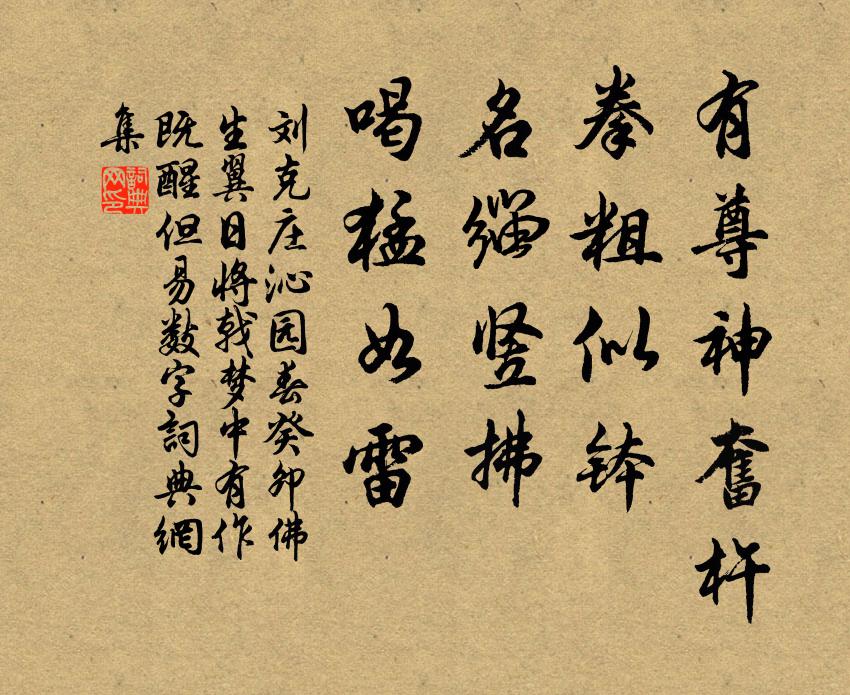 有尊神奮杵
拳粗似钵
名缁竖拂
喝猛如雷
刘克庄沁园春癸卯佛
生翼日将晓梦中有作
既醒但易数字詞典網
集
詞典
网印